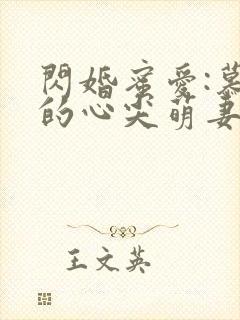 閃婚蜜愛:慕
的心尖萌妻
王文英